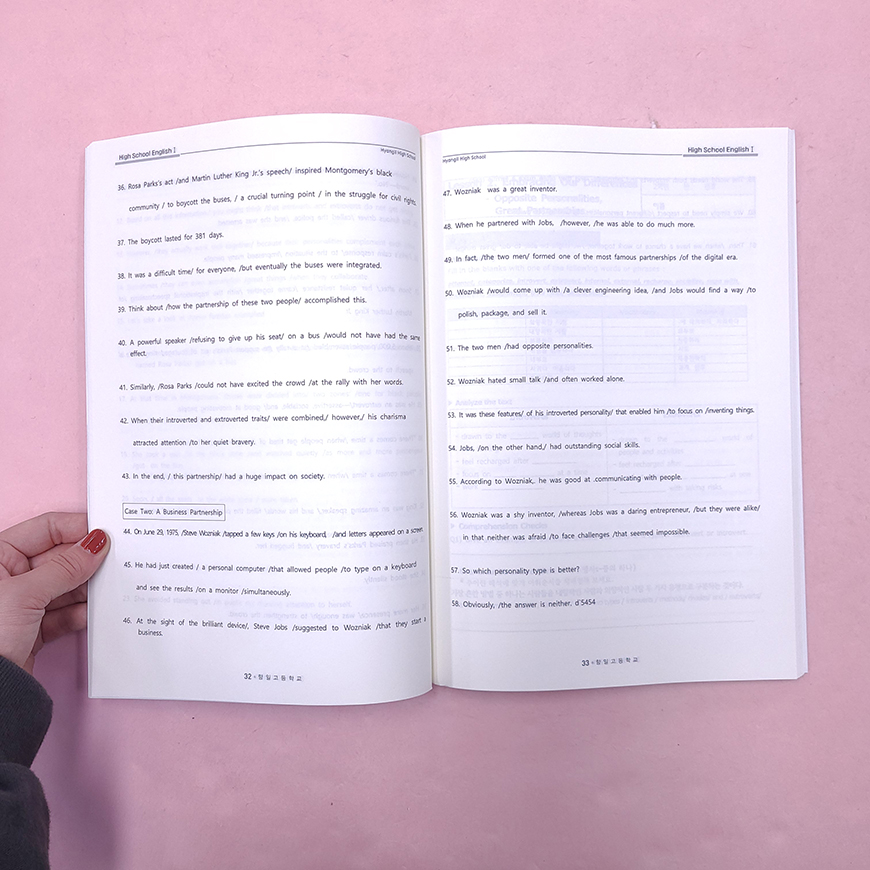 High School English Ⅰ
Hyangil High School
36. Rosa Parks's act /and Martin Luther King Jr.'s speech/ inspired Montgomery's black
community / to boycott the buses, / a crucial turning point / in the struggle for civil rights.
37. The boycott lasted for 381 days.
38. It was a difficult time/ for everyone, /but eventually the buses were integrated.
39. Think about /how the partnership of these two people/ accomplished this.
40. A powerful speaker /refusing to give up his seat/ on a bus /would not have had the same
effect.
41. Similarly, /Rosa Parks /could not have excited the crowd /at the rally with her words.
42. When their introverted and extroverted traits/ were combined,/ however,/ his charisma
attracted attention /to her quiet bravery.
43. In the end, / this partnership/ had a huge impact on society.
Case Two: A Business Partnership
44. On June 29, 1975, /Steve Wozniak /tapped a few keys /on his keyboard, /and letters appeared on a screen.
45. He had just created / a personal computer /that allowed people /to type on a keyboard
and see the results /on a monitor /simultaneously.
46. At the sight of the brilliant device/, Steve Jobs /suggested to Wozniak /that they start a
business.
32 - 향일고등학교
Hyangil High School
High School English Ⅰ
47. Wozniak was a great inventor.
48. When he partnered with Jobs, /however, /he was able to do much more.
49. In fact, /the two men/ formed one of the most famous partnerships /of the digital era.
50. Wozniak /would come up with /a clever engineering idea, /and Jobs would find a way /to
polish, package, and sell it.
51. The two men /had opposite personalities.
52. Wozniak hated small talk /and often worked alone.
53. It was these features/ of his introverted personality/ that enabled him /to focus on /inventing things.
54. Jobs, /on the other hand,/ had outstanding social skills.
55. According to Wozniak,. he was good at .communicating with people.
56. Wozniak was a shy inventor, /whereas Jobs was a daring entrepreneur, /but they were alike/
in that neither was afraid /to face challenges /that seemed impossible.
57. So which personality type is better?
58. Obviously, /the answer is neither. d`5454
33 - 향일고등학교